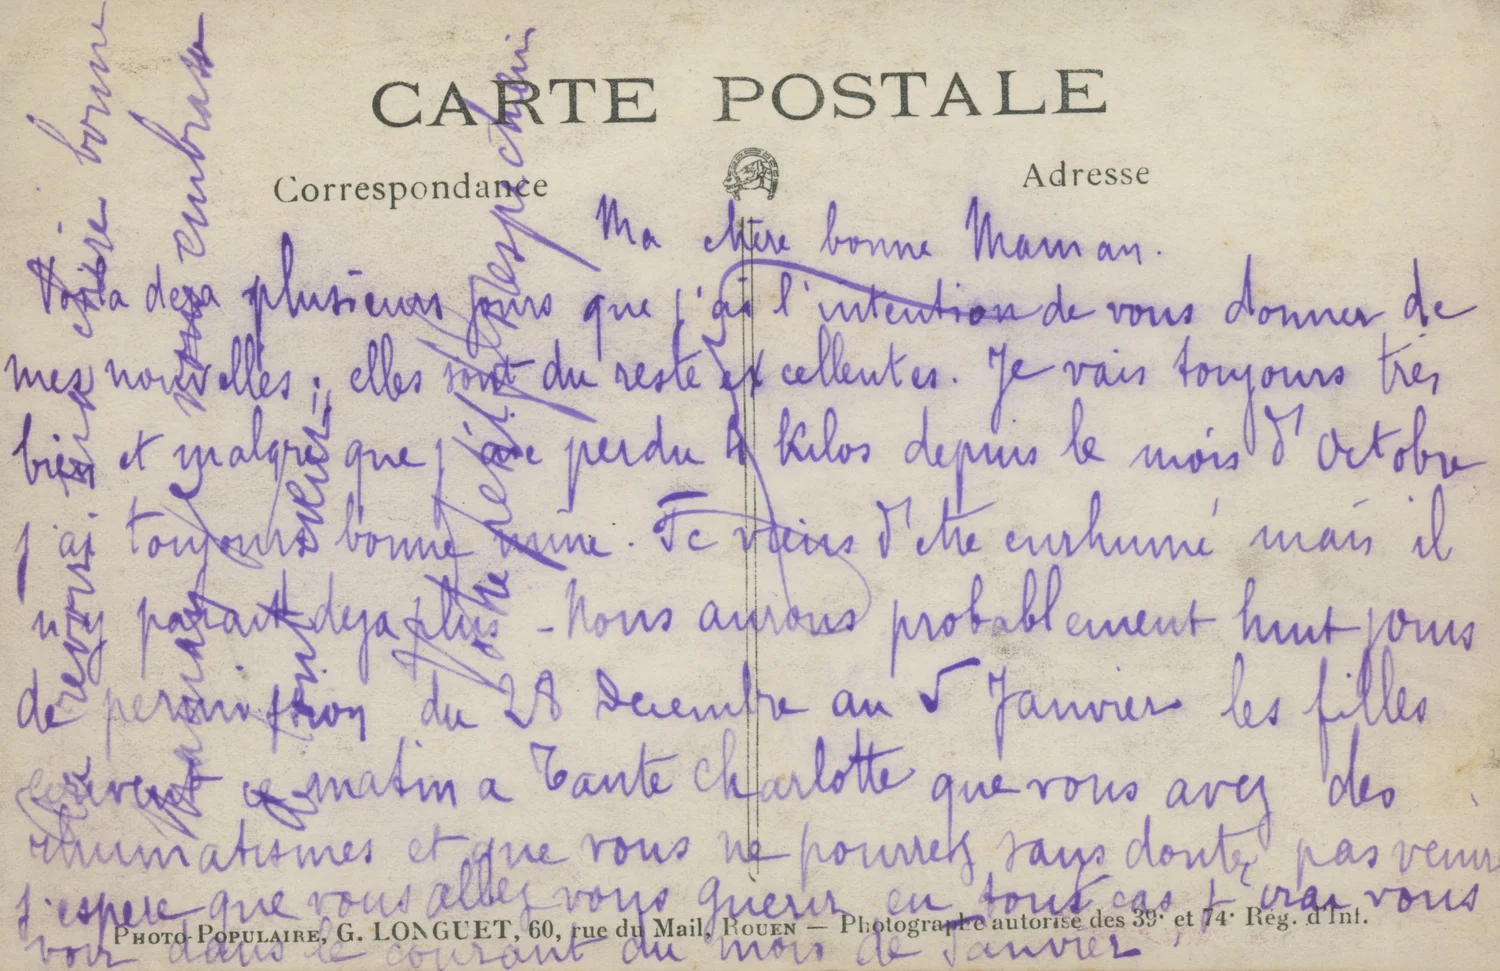 CARTE POSTALE
Correspondance
Adresse
Ma chère bonne Maman.
Voila deja plusieurs jours que j'ai l'intention de vous donner de
mes nouvelles ; elles sont du reste excellentes. Je vais toujours très
bien et malgré que j'aie perdu 4 Kilos depuis le mois d'Octobre
j'ai toujours bonne mine. Je viens d'etre enrhumé mais il
n'y parait deja plus - Nous aurons probablement huit jours
de permission du 28 Decembre au 5 Janvier les filles
ecrivent ce matin a Tante Charlotte que vous avez des
rhumatismes et que vous ne pourrez sans doute pas venir
j'espere que vous allez vous guerir en tous cas j'irai vous
voir dans le courant du mois de Janvier
PHOTO-POPULAIRE, G. LONGUET, 60, rue du Mail, ROUEN — Photographe autorisé des 39e et 74e Rég. d'Inf.
revoir ma chère bonne
Maman je vous embrasse
Votre petit fils respectueux